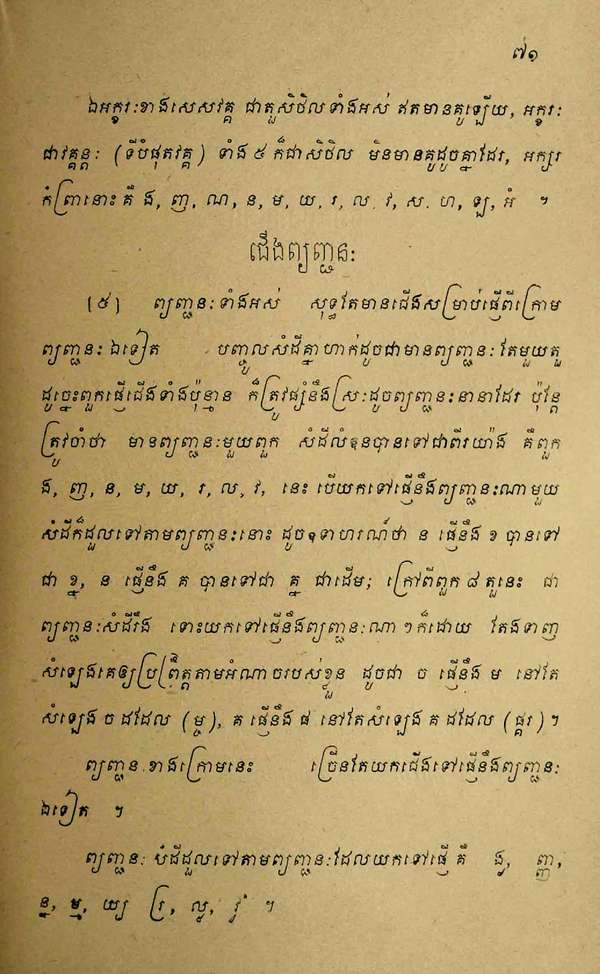 ៧១
ឯអក្ខរៈខាងសេសវគ្គ ជាតួសិថិលទាំងអស់ ឥតមានគូឡើយ, អក្ខរៈ
ជាវគ្គន្តៈ (ទីបំផុតវគ្គ) ទាំង ៥ ក៏ជាសិថិល មិនមានគូដូចគ្នាដែរ, អក្សរ
កំព្រានោះគឺ ង, ញ, ណ, ន, ម, យ, រ, ល, វ, ស, ហ, ឡ, អំ ។
ជើងព្យញ្ជនៈ
(៥) ព្យញ្ជនៈទាំងអស់ សុទ្ធតែមានជើងសម្រាប់ផ្ញើពីក្រោម
ព្យញ្ជនៈឯទៀត បញ្ចូលសំដីគ្នាហាក់ដូចជាមានព្យញ្ជនៈតែមួយតួ
ដូច្នេះពួកផ្ញើជើងទាំងប៉ុន្មាន ក៏ត្រូវផ្សំនឹងស្រៈដូចព្យញ្ជនៈនានាដែរ ប៉ុន្តែ
ត្រូវចាំថា មានព្យញ្ជនៈមួយពួក សំដីលំឱនបានទៅជាពីរយ៉ាង គឺពួក
ង, ញ, ន, ម, យ, រ, ល, វ, នេះ បើយកទៅផ្ញើនឹងព្យញ្ជនៈណាមួយ
សំដីក៏ដួលទៅតាមព្យញ្ជនៈនោះ ដូចឧទាហរណ៍ថា ន ផ្ញើនឹង ខ បានទៅ
ជា ខ្ន, ន ផ្ញើនឹង គ បានទៅជា គ្ន ជាដើម; ក្រៅពីពួក ៨ តួនេះ ជា
ព្យញ្ជនៈសំដីរឹង ទោះយកទៅផ្ញើនឹងព្យញ្ជនៈណាៗក៏ដោយ តែងទាញ
សំឡេងគេឲ្យប្រព្រឹត្តតាមអំណាចរបស់ខ្លួន ដូចជា ច ផ្ញើនឹង ម នៅតែ
សំឡេង ច ដដែល (ម្ច), គ ផ្ញើនឹង ផ នៅតែសំឡេង គ ដដែល (ផ្គរ) ។
ព្យញ្ជនៈខាងក្រោមនេះ ច្រើនតែយកជើងទៅផ្ញើនឹងព្យញ្ជនៈ
ឯទៀត ។
ព្យញ្ជនៈ សំដីដួលទៅតាមព្យញ្ជនៈដែលយកទៅផ្ញើ គឺ ង្ង, ញ្ញ,
ន្ន, ម្ម, យ្យ រ្រ, ល្ល, វ្វ ។